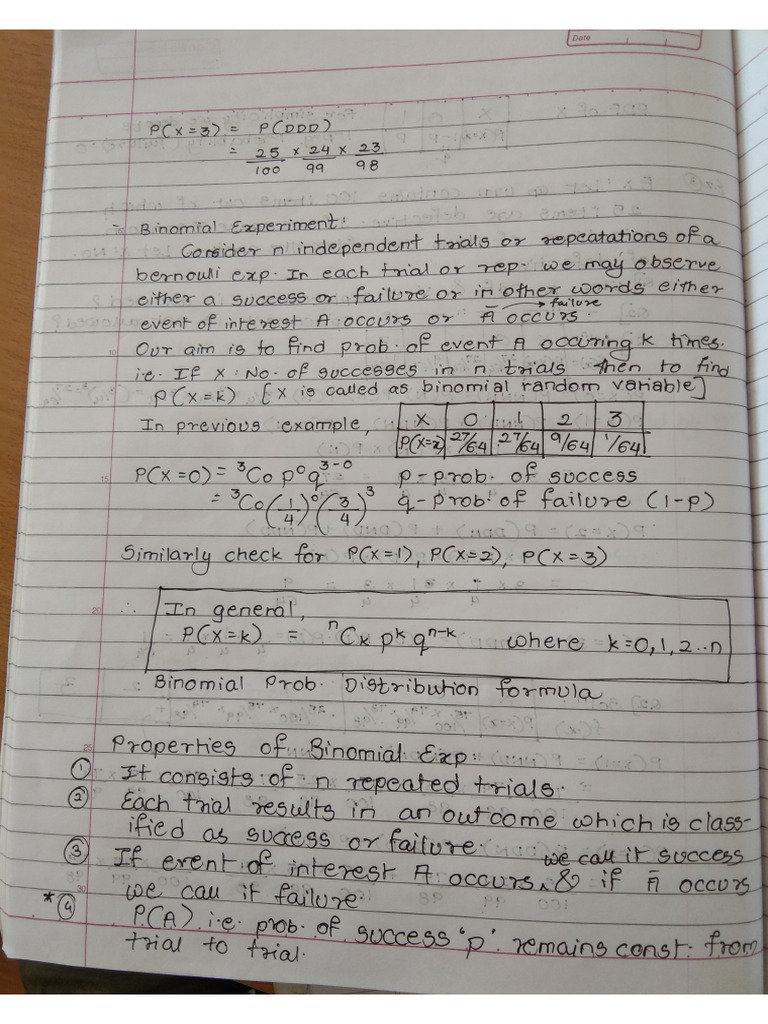 Date
P(X=3) = P(DDD)
= 25/100 × 24/99 × 23/98
Binomial Experiment:
Consider n independent trials or repeatations of a
bernouli exp. In each trial or rep. we may observe
either a success or failure or in other words either
event of interest A occurs or Ā occurs. → failure
10 Our aim is to find prob. of event A occuring k times.
i.e. If X : No. of successes in n trials then to find
P(X=k) [X is called as binomial random variable]
In previous example, X 0 1 2 3
P(X=x) 27/64 27/64 9/64 1/64
15 P(X=0) = ³C₀ p⁰ q³⁻⁰ p – prob. of success
= ³C₀ (1/4)⁰ (3/4)³ q – prob. of failure (1-p)
Similarly check for P(X=1), P(X=2), P(X=3)
20 ∴ In general,
P(X=k) = ⁿCₖ pᵏ qⁿ⁻ᵏ where k=0,1,2..n
Binomial Prob. Distribution formula
25 Properties of Binomial Exp:
① It consists of n repeated trials.
② Each trial results in an outcome which is class-
ified as success or failure.
③ If event of interest A occurs we call it success & if Ā occurs
30 we call it failure.
* ④ P(A) i.e. prob. of success 'p' remains const. from
trial to trial.